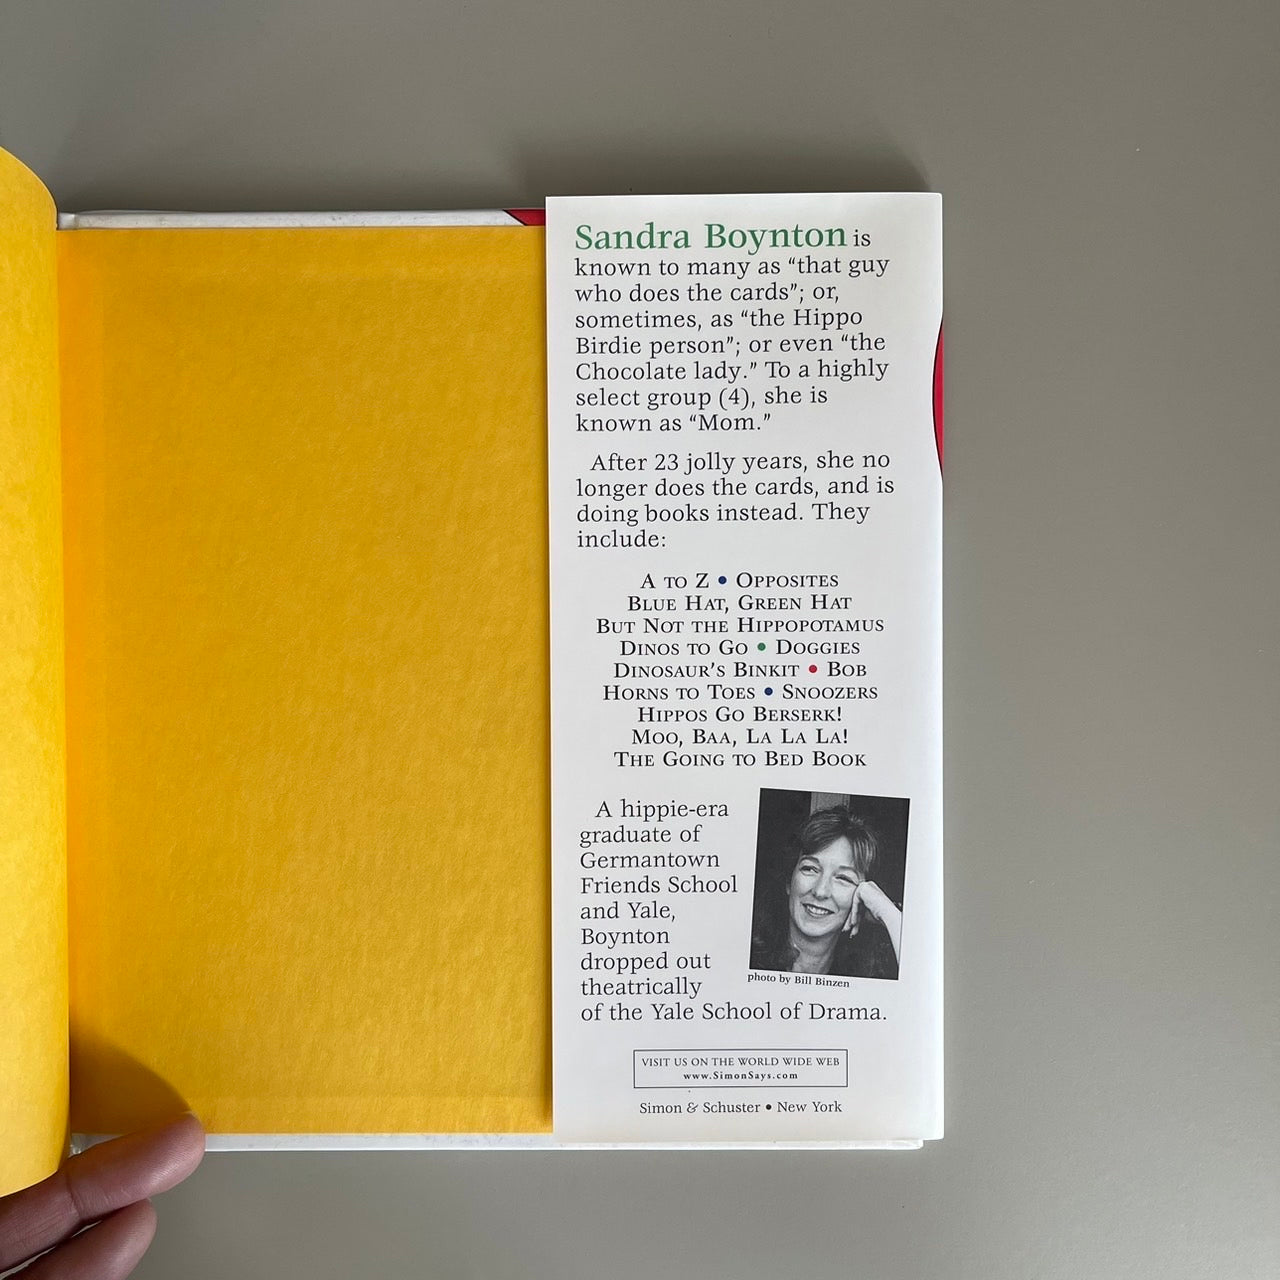 Sandra Boynton is
known to many as “that guy
who does the cards”; or,
sometimes, as “the Hippo
Birdie person”; or even “the
Chocolate lady.” To a highly
select group (4), she is
known as “Mom.”
After 23 jolly years, she no
longer does the cards, and is
doing books instead. They
include:
A TO Z • OPPOSITES
BLUE HAT, GREEN HAT
BUT NOT THE HIPPOPOTAMUS
DINOS TO GO • DOGGIES
DINOSAUR’S BINKIT • BOB
HORNS TO TOES • SNOOZERS
HIPPOS GO BERSERK!
MOO, BAA, LA LA LA!
THE GOING TO BED BOOK
A hippie-era
graduate of
Germantown
Friends School
and Yale,
Boynton
dropped out
theatrically
of the Yale School of Drama.
photo by Bill Binzen
VISIT US ON THE WORLD WIDE WEB
www.SimonSays.com
Simon & Schuster • New York